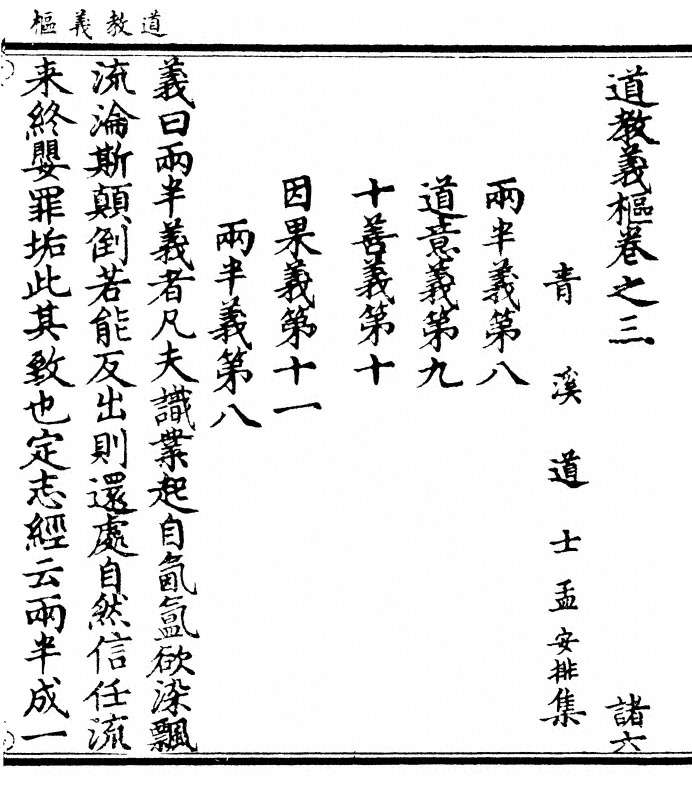 道教義樞
道教義樞卷之三 諸六
青溪道士孟安排集
兩半義第八
道意義第九
十善義第十
因果義第十一
兩半義第八
義曰兩半義者凡夫識業起自氤氳欲染飄
流淪斯顛倒若能反出則還處自然信任流
来終嬰罪垢此其致也定志經云兩半成一